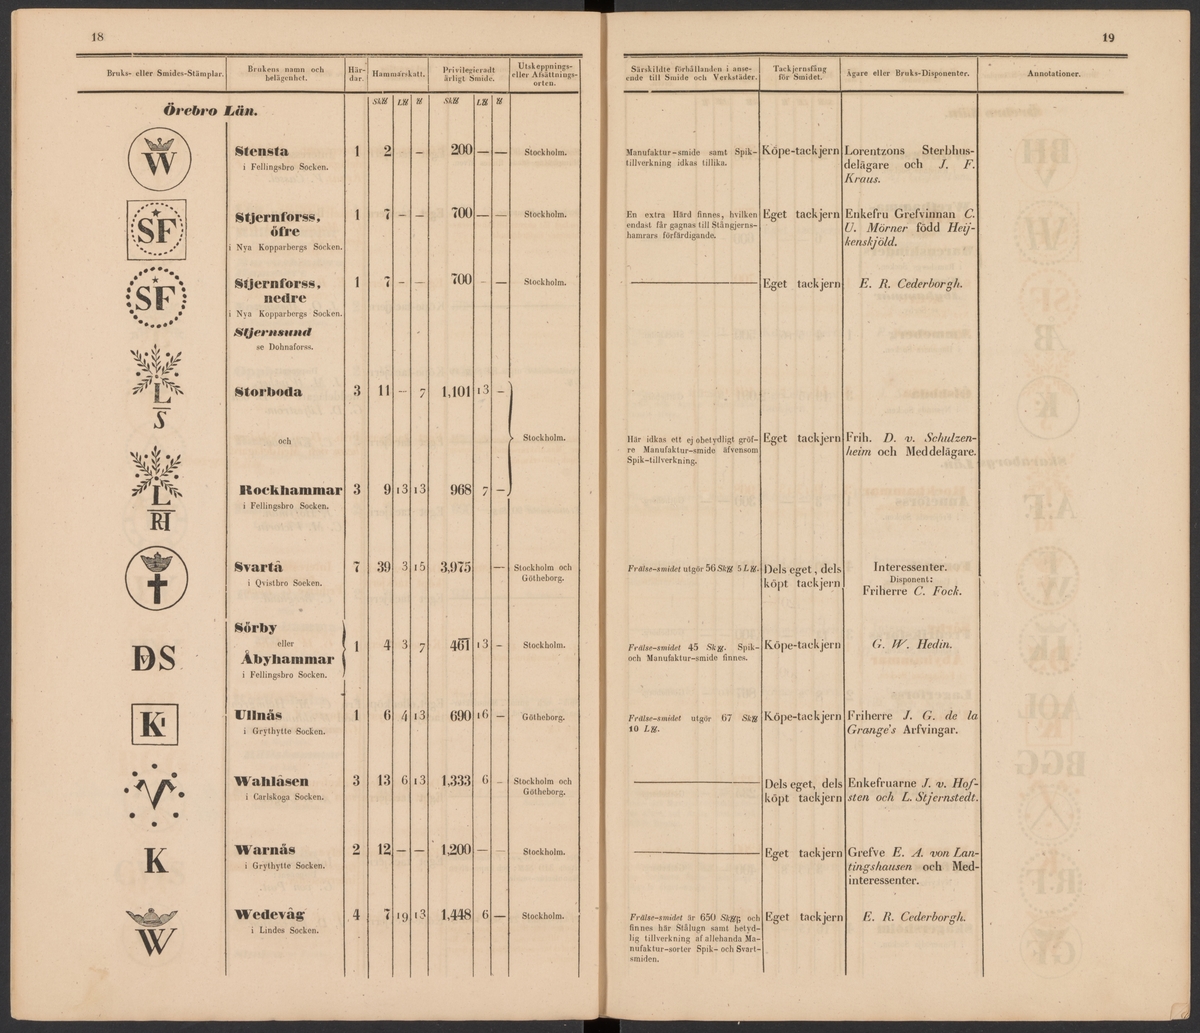 18
Bruks- eller Smides-Stämplar.
Brukens namn och
belägenhet.
Här-
dar.
Hammarskatt.
Privilegieradt
årligt Smide.
Utskeppnings-
eller Afsättnings-
orten.
Örebro Län.
W
Stensta 1 2 – 200 — — Stockholm.
i Fellingsbro Socken.
SF
Stjernforss, 1 7 – – 700 — — Stockholm.
öfre
i Nya Kopparbergs Socken.
SF
Stjernforss, 1 7 – – 700 – — Stockholm.
nedre
i Nya Kopparbergs Socken.
Stjernsund
se Dohnaforss.
L
S
Storboda 3 11 – 7 1,101 13 –
och Stockholm.
L
RH
Rockhammar 3 9 13 13 968 7 –
i Fellingsbro Socken.
Svartå 7 39 3 15 3,975 — Stockholm och
Götheborg.
i Qvistbro Socken.
Sörby
eller 1 4 3 7 461 13 – Stockholm.
Åbyhammar
i Fellingsbro Socken.
DS
K
Ullnäs 1 6 4 13 690 16 – Götheborg.
i Grythytte Socken.
V
Wahlåsen 3 13 6 13 1,333 6 – Stockholm och
Götheborg.
i Carlskoga Socken.
K
Warnäs 2 12 – – 1,200 — – Stockholm.
i Grythytte Socken.
W
Wedevåg 4 7 19 13 1,448 6 — Stockholm.
i Lindes Socken.
19
Särskildte förhållanden i anse-
ende till Smide och Verkstäder.
Tackjernsfång
för Smidet.
Ägare eller Bruks-Disponenter.
Annotationer.
Manufaktur-smide samt Spik-
tillverkning idkas tillika.
Köpe-tackjern
Lorentzons Sterbhus-
delägare och J. F.
Kraus.
En extra Härd finnes, hvilken
endast får gagnas till Stångjerns-
hamrars förfärdigande.
Eget tackjern
Enkefru Grefvinnan C.
U. Mörner född Heij-
kenskjöld.
Eget tackjern
E. R. Cederborgh.
Här idkas ett ej obetydligt gröf-
re Manufaktur-smide äfvensom
Spik-tillverkning.
Eget tackjern
Frih. D. v. Schulzen-
heim och Meddelägare.
Frälse-smidet utgör 56 Sk℔ 5 L℔.
Dels eget, dels
köpt tackjern
Interessenter.
Disponent:
Friherre C. Fock.
Frälse-smidet 45 Sk℔. Spik-
och Manufaktur-smide finnes.
Köpe-tackjern
G. W. Hedin.
Frälse-smidet utgör 67 Sk℔
10 L℔.
Köpe-tackjern
Friherre J. G. de la
Grange's Arfvingar.
Dels eget, dels
köpt tackjern
Enkefruarne J. v. Hof-
sten och L. Stjernstedt.
Eget tackjern
Grefve E. A. von Lan-
tingshausen och Med-
interessenter.
Frälse-smidet är 650 Sk℔, och
finnes här Stålugn samt betyd-
lig tillverkning af allehanda Ma-
nufaktur-sorter Spik- och Svart-
smiden.
Eget tackjern
E. R. Cederborgh.